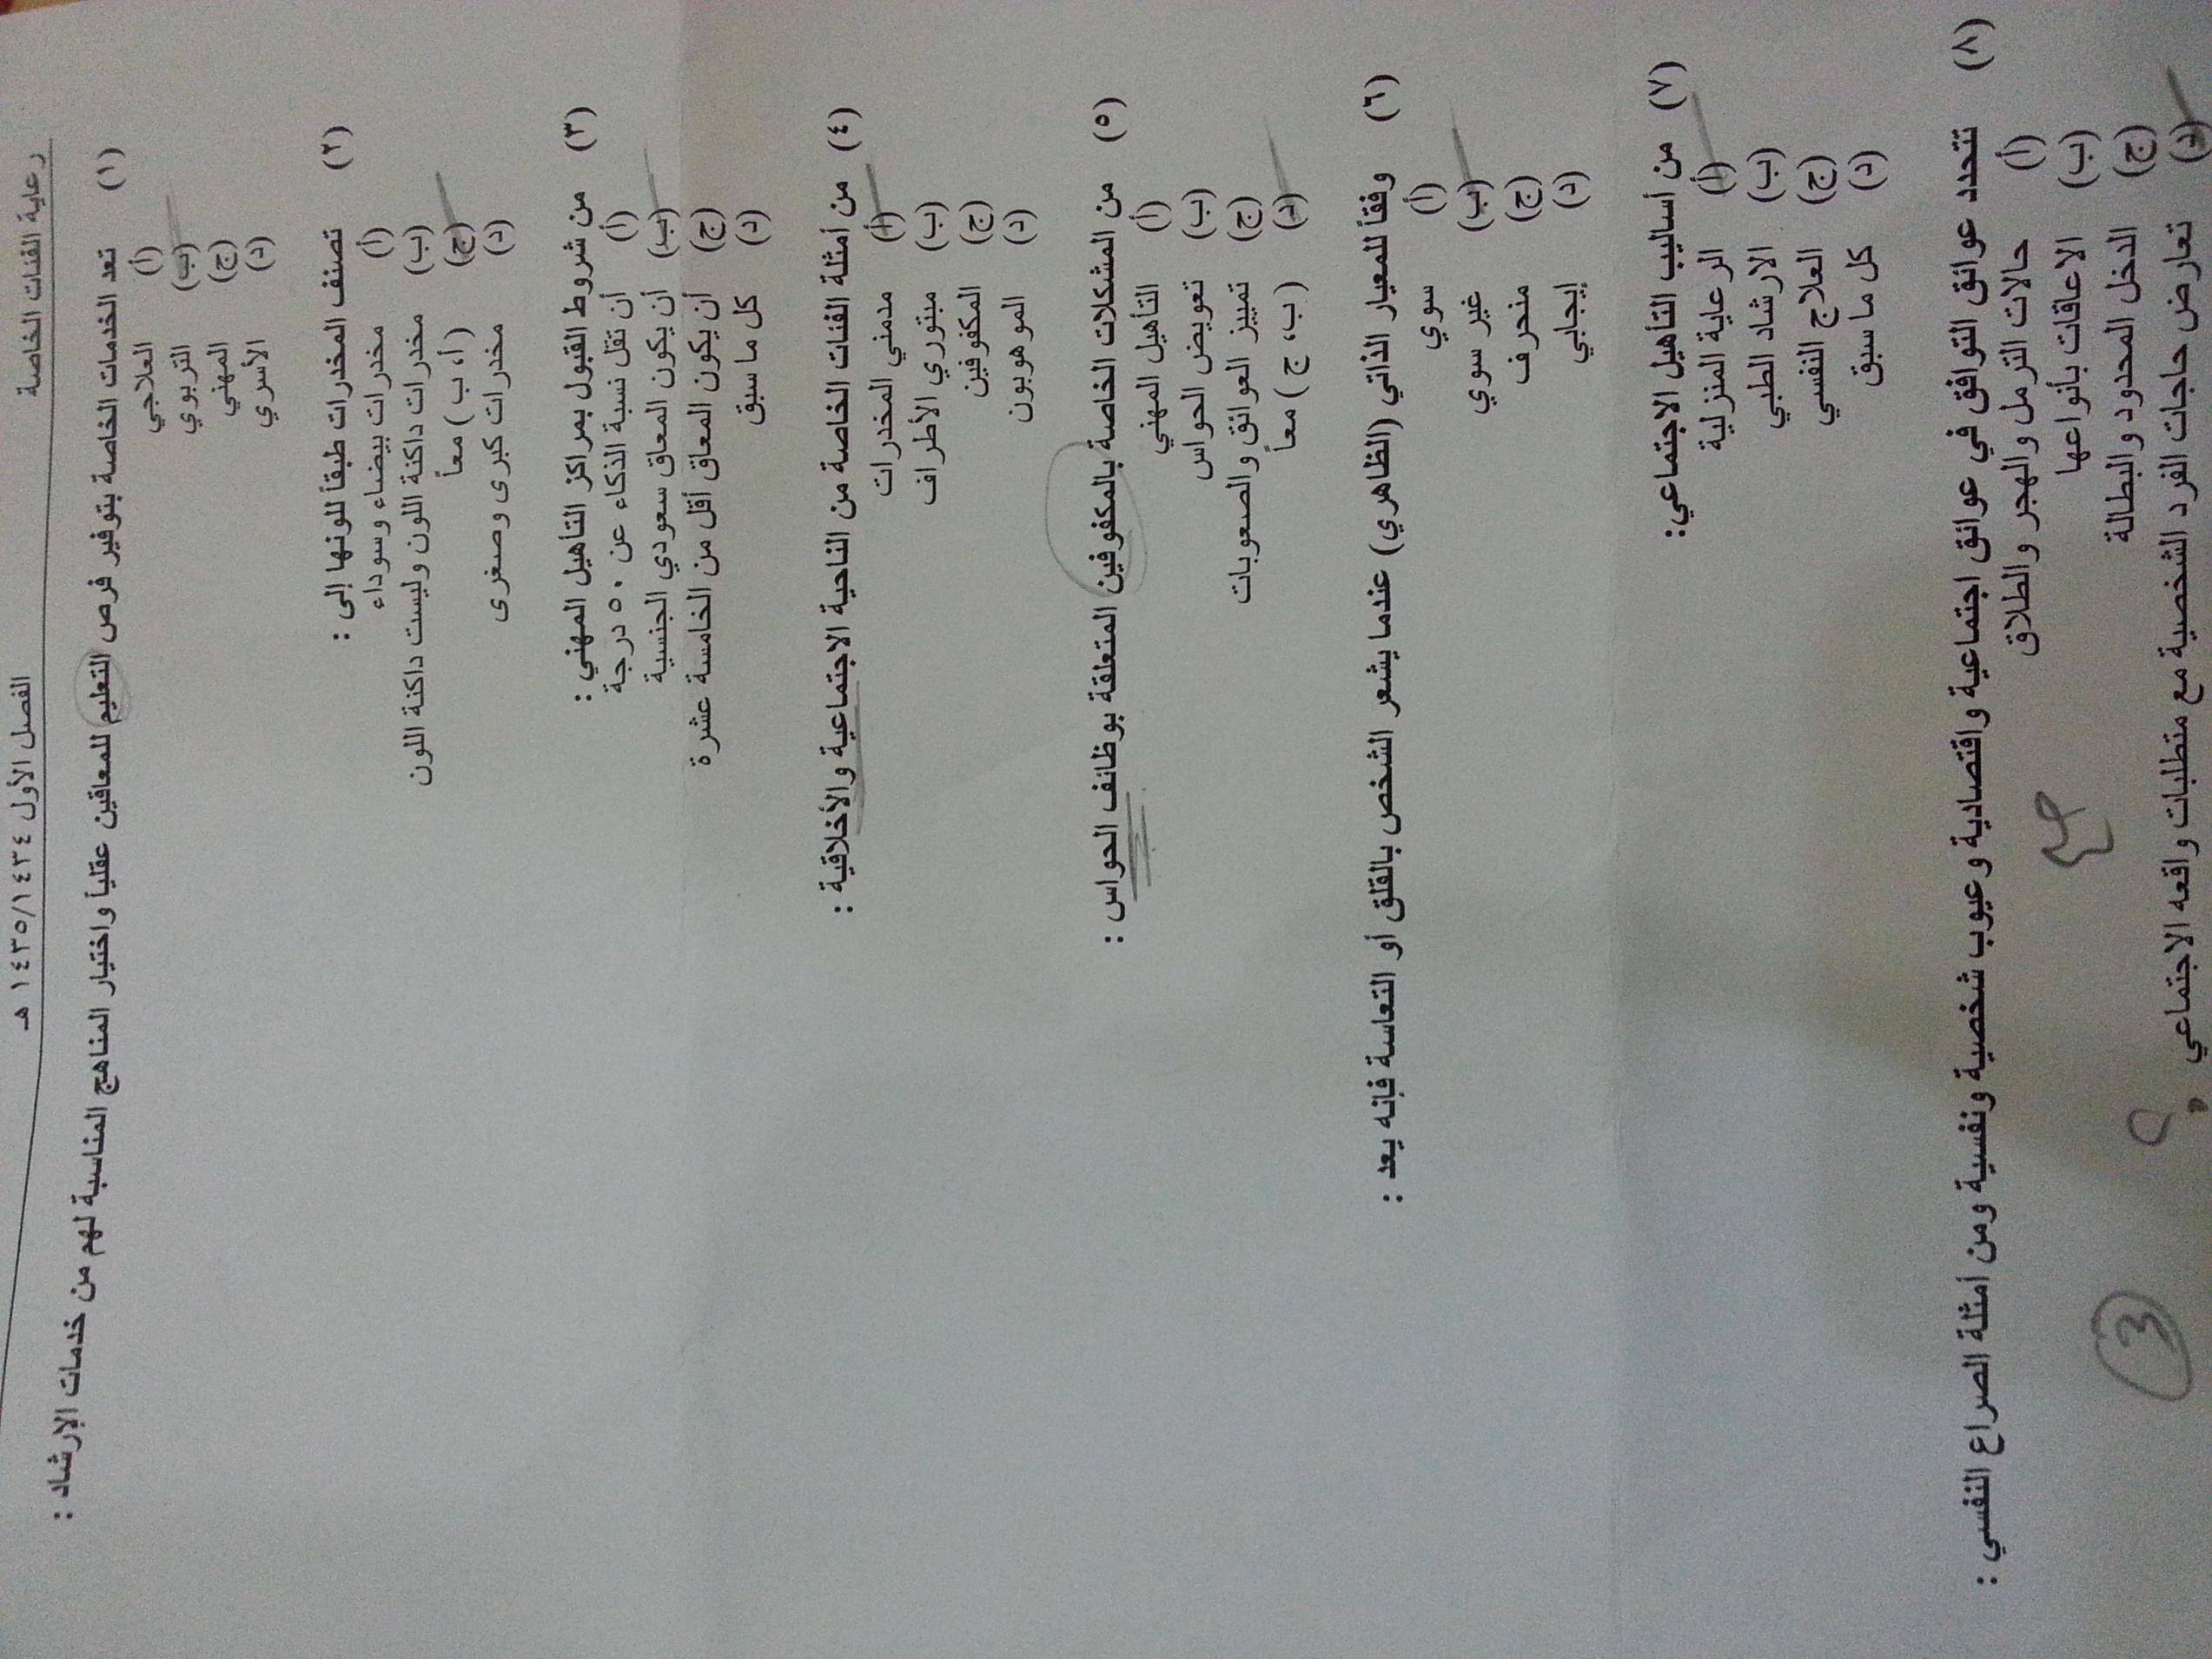 رعاية الفئات الخاصة الفصل الأول ١٤٣٥/١٤٣٤ هـ
(١) تعد الخدمات الخاصة بتوفير فرص التعليم للمعاقين عقلياً واختيار المناهج المناسبة لهم من خدمات الإرشاد :
(أ) العلاجي
(ب) التربوي
(ج) المهني
(د) الأسري
(٢) تصنف المخدرات طبقاً للونها إلى :
(أ) مخدرات بيضاء وسوداء
(ب) مخدرات داكنة اللون وليست داكنة اللون
(ج) (أ، ب) معاً
(د) مخدرات كبرى وصغرى
(٣) من شروط القبول بمراكز التأهيل المهني :
(أ) أن تقل نسبة الذكاء عن ٥٠ درجة
(ب) أن يكون المعاق سعودي الجنسية
(ج) أن يكون المعاق أقل من الخامسة عشرة
(د) كل ما سبق
(٤) من أمثلة الفئات الخاصة من الناحية الاجتماعية والأخلاقية :
(أ) مدمني المخدرات
(ب) مبتوري الأطراف
(ج) المكفوفين
(د) الموهوبون
(٥) من المشكلات الخاصة بالمكفوفين المتعلقة بوظائف الحواس :
(أ) التأهيل المهني
(ب) تعويض الحواس
(ج) تمييز العوائق والصعوبات
(د) (ب، ج) معاً
(٦) وفقاً للمعيار الذاتي (الظاهري) عندما يشعر الشخص بالقلق أو التعاسة فإنه يعد :
(أ) سوي
(ب) غير سوي
(ج) منحرف
(د) إيجابي
(٧) من أساليب التأهيل الاجتماعي:
(أ) الرعاية المنزلية
(ب) الارشاد الطبي
(ج) العلاج النفسي
(د) كل ما سبق
(٨) تتحدد عوائق التوافق في عوائق اجتماعية واقتصادية وعيوب شخصية ونفسية ومن أمثلة الصراع النفسي :
(أ) حالات الترمل والهجر والطلاق
(ب) الاعاقات بأنواعها
(ج) الدخل المحدود والبطالة
(د) تعارض حاجات الفرد الشخصية مع متطلبات واقعه الاجتماعي
3